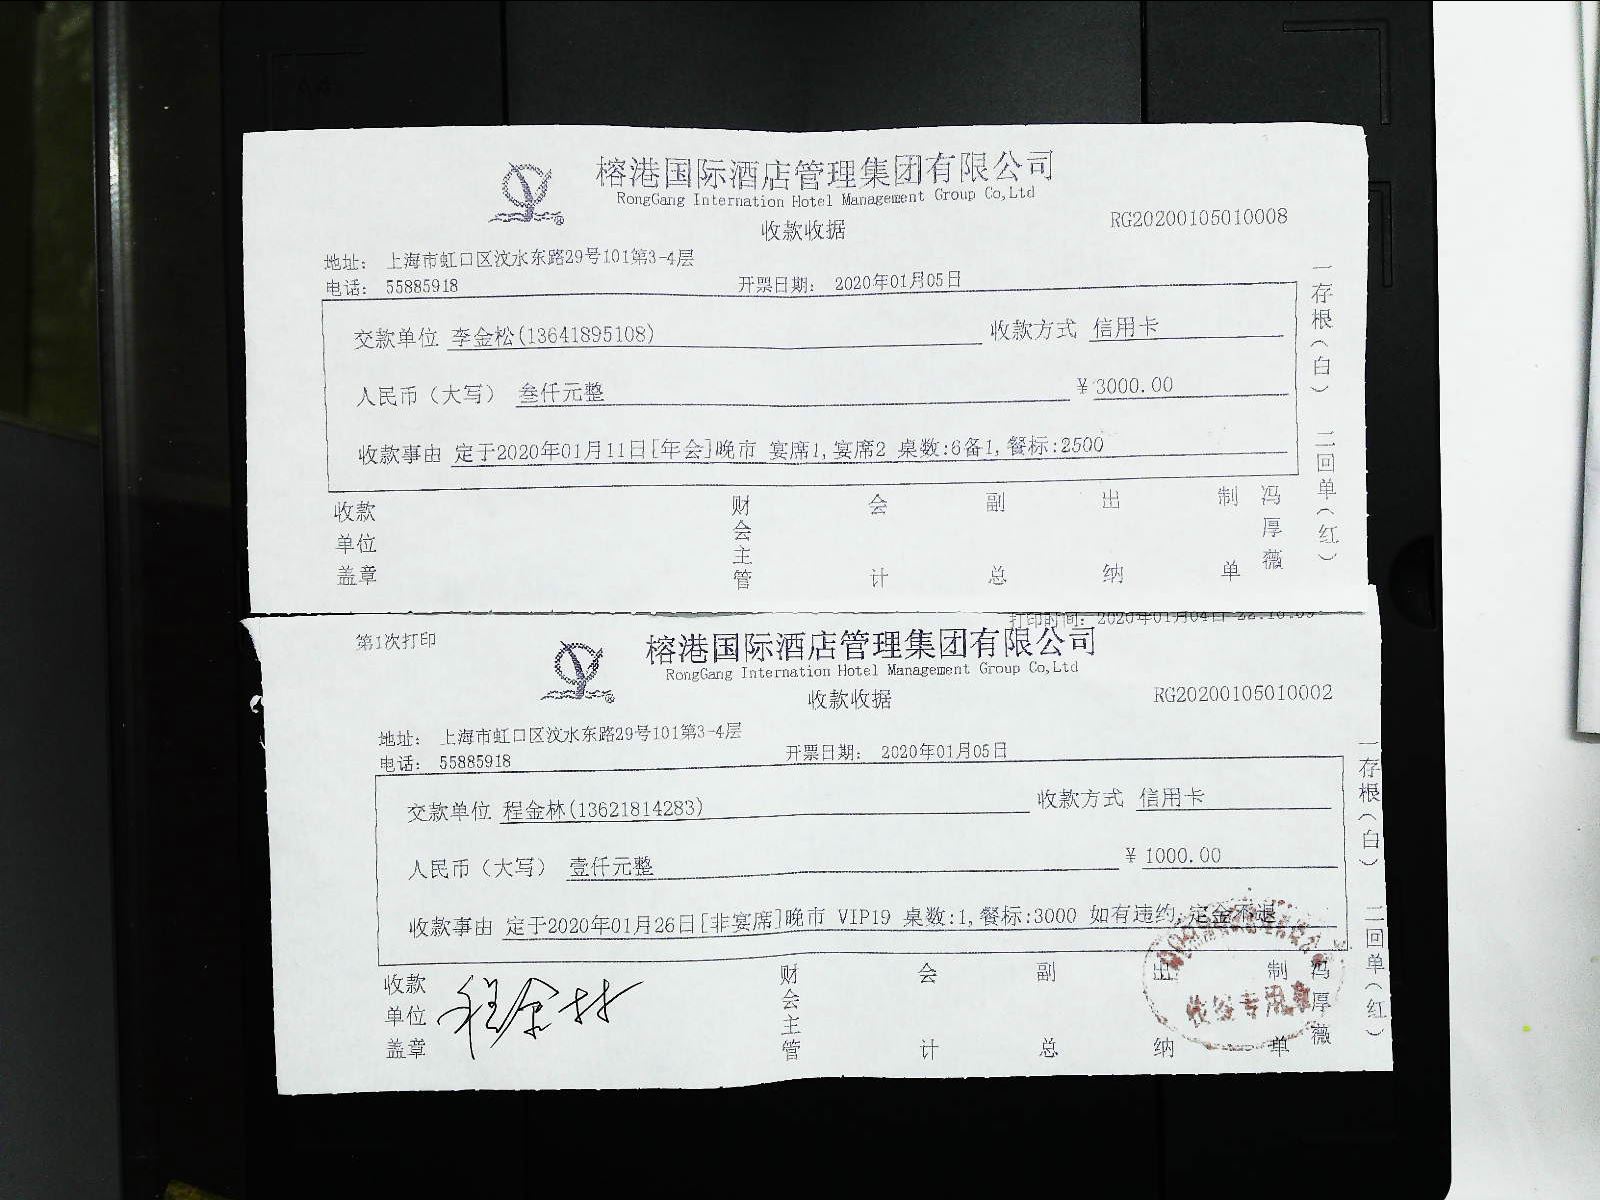 榕港国际酒店管理集团有限公司
RongGang Internation Hotel Management Group Co,Ltd
收款收据
RG20200105010008
地址： 上海市虹口区汶水东路29号101第3-4层
电话： 55885918
开票日期： 2020年01月05日
交款单位 李金松(13641895108)
收款方式 信用卡
人民币（大写） 叁仟元整
￥3000.00
收款事由 定于2020年01月11日[年会]晚市 宴席1,宴席2 桌数:6备1,餐标:2500
收款单位盖章
财会主管
会计
副总
出纳
制单
冯厚薇
一存根（白） 二回单（红）
第1次打印
打印时间：2020年01月04日
榕港国际酒店管理集团有限公司
RongGang Internation Hotel Management Group Co,Ltd
收款收据
RG20200105010002
地址： 上海市虹口区汶水东路29号101第3-4层
电话： 55885918
开票日期： 2020年01月05日
交款单位 程金林(13621814283)
收款方式 信用卡
人民币（大写） 壹仟元整
￥1000.00
收款事由 定于2020年01月26日[非宴席]晚市 VIP19 桌数:1,餐标:3000 如有违约,定金不退
收款单位盖章
程金林
财会主管
会计
副总
出纳
制单
冯厚薇
一存根（白） 二回单（红）